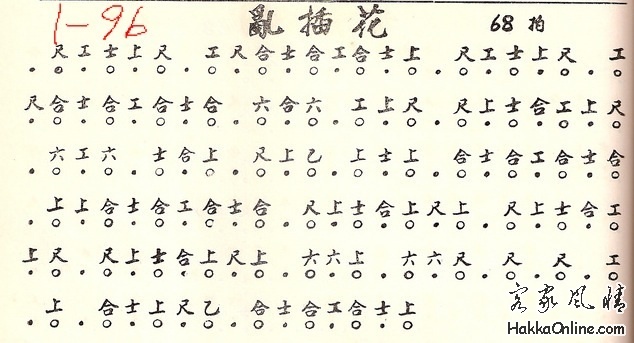 1-96 亂插花 68拍
尺工士上尺 工尺合士合工合士上 尺工士上尺 工
尺合士合工合士合 六合六 工上尺 尺上士合工上尺
六工六 士合上 尺上乙 上士上 合士合工合士合
上上合士合工合士合 尺上士合上尺上 尺上士合工
上尺 尺上士合上尺上 六六上 六六尺 尺 尺 工
上 合士上尺乙 合士合工合士上
客家風情
HakkaOnline.com